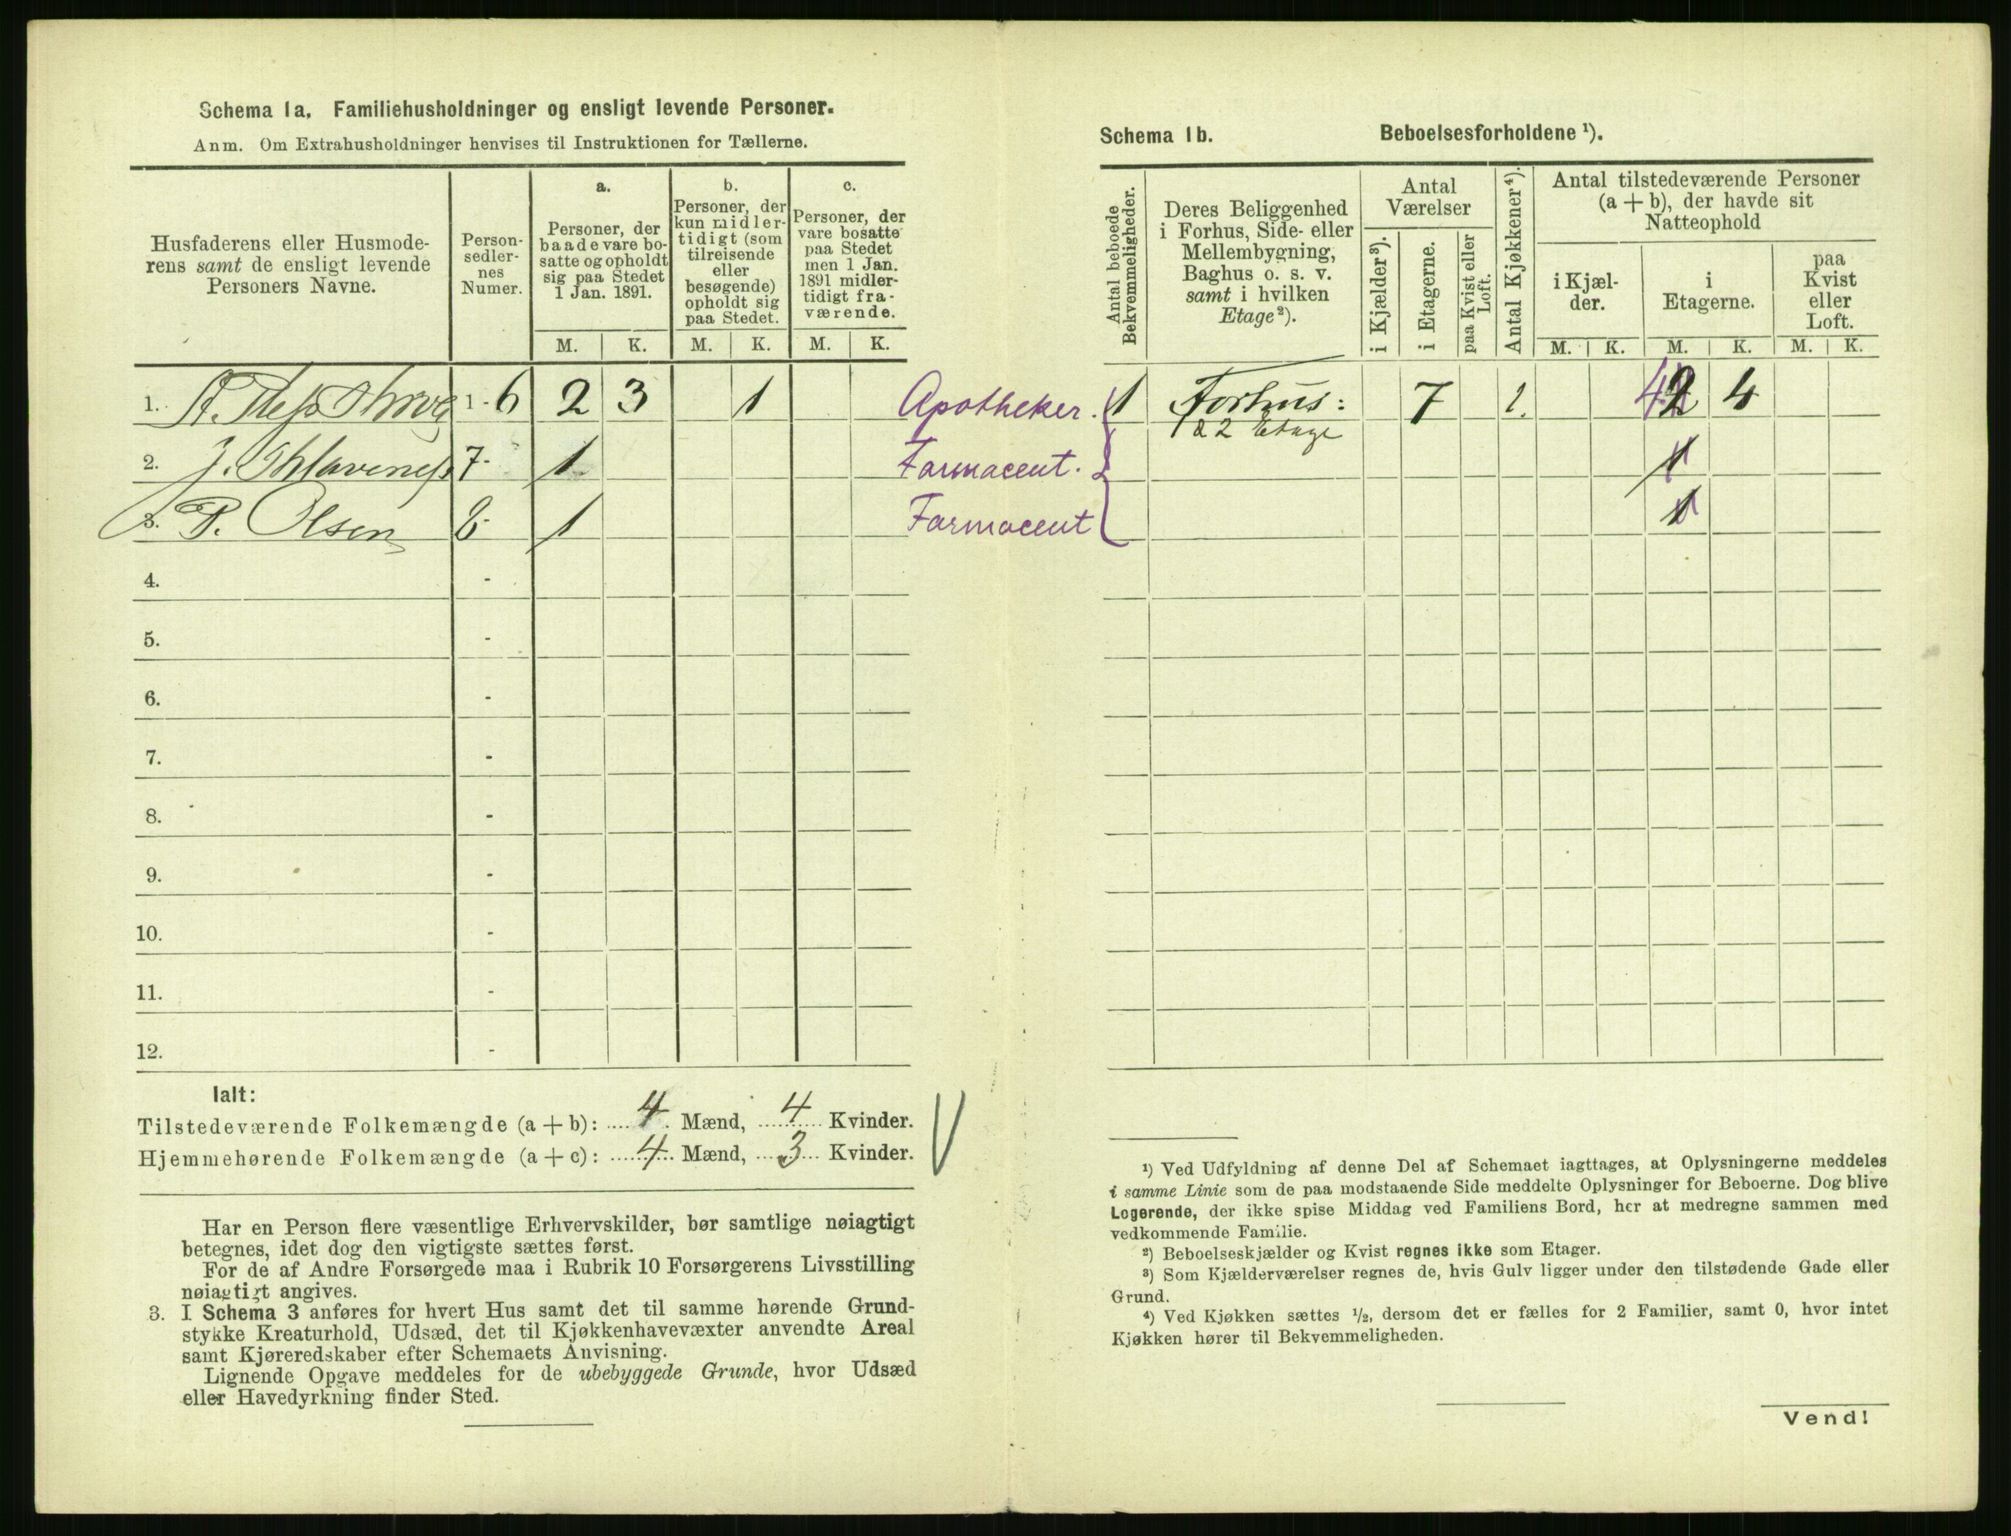 Schema 1a. Familiehusholdninger og ensligt levende Personer.
Anm. Om Extrahusholdninger henvises til Instruktionen for Tællerne.
Husfaderens eller Husmode-
rens samt de ensligt levende
Personers Navne.
Person-
sedler-
nes
Numer.
a.
Personer, der
baade vare bo-
satte og opholdt
sig paa Stedet
1 Jan. 1891.
b.
Personer, der
kun midler-
tidigt (som
tilreisende
eller
besøgende)
opholdt sig
paa Stedet.
c.
Personer, der
vare bosatte
paa Stedet
men 1 Jan.
1891 midler-
tidigt fra-
værende.
M. K. M. K. M. K.
1. 1 - 6 2 3 1 Apotheker.
2. J. 7 - 1 Farmaceut.
3. P. Olsen 8 - 1 Farmaceut
4. -
5. -
6. -
7. -
8. -
9. -
10. -
11. -
12. -
Ialt:
Tilstedeværende Folkemængde (a + b): 4 Mænd, 4 Kvinder.
Hjemmehørende Folkemængde (a + c): 4 Mænd, 3 Kvinder.
Har en Person flere væsentlige Erhvervskilder, bør samtlige nøiagtigt
betegnes, idet dog den vigtigste sættes først.
For de af Andre Forsørgede maa i Rubrik 10 Forsørgerens Livsstilling
nøiagtigt angives.
3. I Schema 3 anføres for hvert Hus samt det til samme hørende Grund-
stykke Kreaturhold, Udsæd, det til Kjøkkenhavevæxter anvendte Areal
samt Kjøreredskaber efter Schemaets Anvisning.
Lignende Opgave meddeles for de ubebyggede Grunde, hvor Udsæd
eller Havedyrkning finder Sted.
Schema 1b. Beboelsesforholdene ¹).
Antal beboede
Bekvemmeligheder.
Deres Beliggenhed
i Forhus, Side- eller
Mellembygning,
Baghus o. s. v.
samt i hvilken
Etage²).
Antal
Værelser
i Kjælder³).
i Etagerne.
paa Kvist eller
Loft.
Antal Kjøkkener⁴).
Antal tilstedeværende Personer
(a + b), der havde sit
Natteophold
i Kjæl-
der.
i
Etagerne.
paa
Kvist
eller
Loft.
M. K. M. K. M. K.
1 Forhus: 7 1. 4 2 4
1 & 2 Etage
1
1
¹) Ved Udfyldning af denne Del af Schemaet iagttages, at Oplysningerne meddeles
i samme Linie som de paa modstaaende Side meddelte Oplysninger for Beboerne. Dog blive
Logerende, der ikke spise Middag ved Familiens Bord, her at medregne sammen med
vedkommende Familie.
²) Beboelseskjælder og Kvist regnes ikke som Etager.
³) Som Kjælderværelser regnes de, hvis Gulv ligger under den tilstødende Gade eller
Grund.
⁴) Ved Kjøkken sættes ¹/₂, dersom det er fælles for 2 Familier, samt 0, hvor intet
Kjøkken hører til Bekvemmeligheden.
Vend!